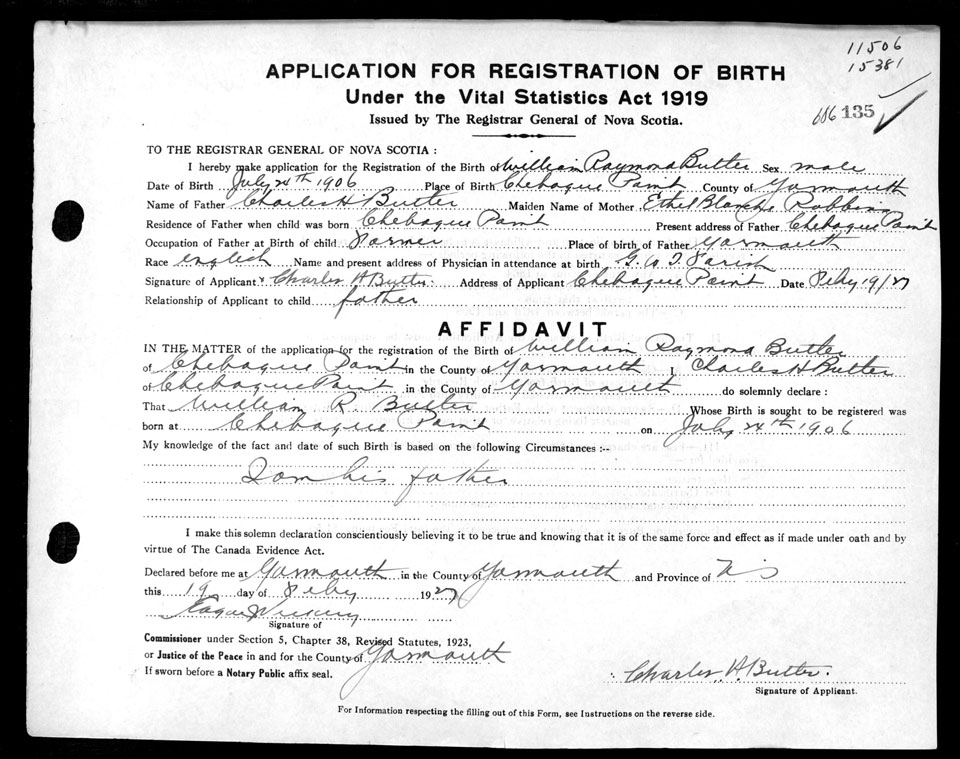 11506
15381
APPLICATION FOR REGISTRATION OF BIRTH
Under the Vital Statistics Act 1919
686 135
Issued by The Registrar General of Nova Scotia.
TO THE REGISTRAR GENERAL OF NOVA SCOTIA :
I hereby make application for the Registration of the Birth of William Raymond Butler Sex male
Date of Birth July 24th 1906 Place of Birth Chebogue Point County of Yarmouth
Name of Father Charles H Butler Maiden Name of Mother Ethel Blanche Robbins
Residence of Father when child was born Chebogue Point Present address of Father Chebogue Point
Occupation of Father at Birth of child Farmer Place of birth of Father Yarmouth
Race english Name and present address of Physician in attendance at birth G. W. T. Farish
Signature of Applicant Charles H Butler Address of Applicant Chebogue Point Date Feby 19/27
Relationship of Applicant to child father
AFFIDAVIT
IN THE MATTER of the application for the registration of the Birth of William Raymond Butler
of Chebogue Point in the County of Yarmouth I Charles H Butler
of Chebogue Point in the County of Yarmouth do solemnly declare :
That William R. Butler Whose Birth is sought to be registered was
born at Chebogue Point on July 24th 1906
My knowledge of the fact and date of such Birth is based on the following Circumstances :--
I am his father
I make this solemn declaration conscientiously believing it to be true and knowing that it is of the same force and effect as if made under oath and by
virtue of The Canada Evidence Act.
Declared before me at Yarmouth in the County of Yarmouth and Province of N S
this 19 day of Feby 1927
Signature of
Commissioner under Section 5, Chapter 38, Revised Statutes, 1923,
or Justice of the Peace in and for the County of Yarmouth
If sworn before a Notary Public affix seal.
Charles H. Butler.
Signature of Applicant.
For Information respecting the filling out of this Form, see Instructions on the reverse side.